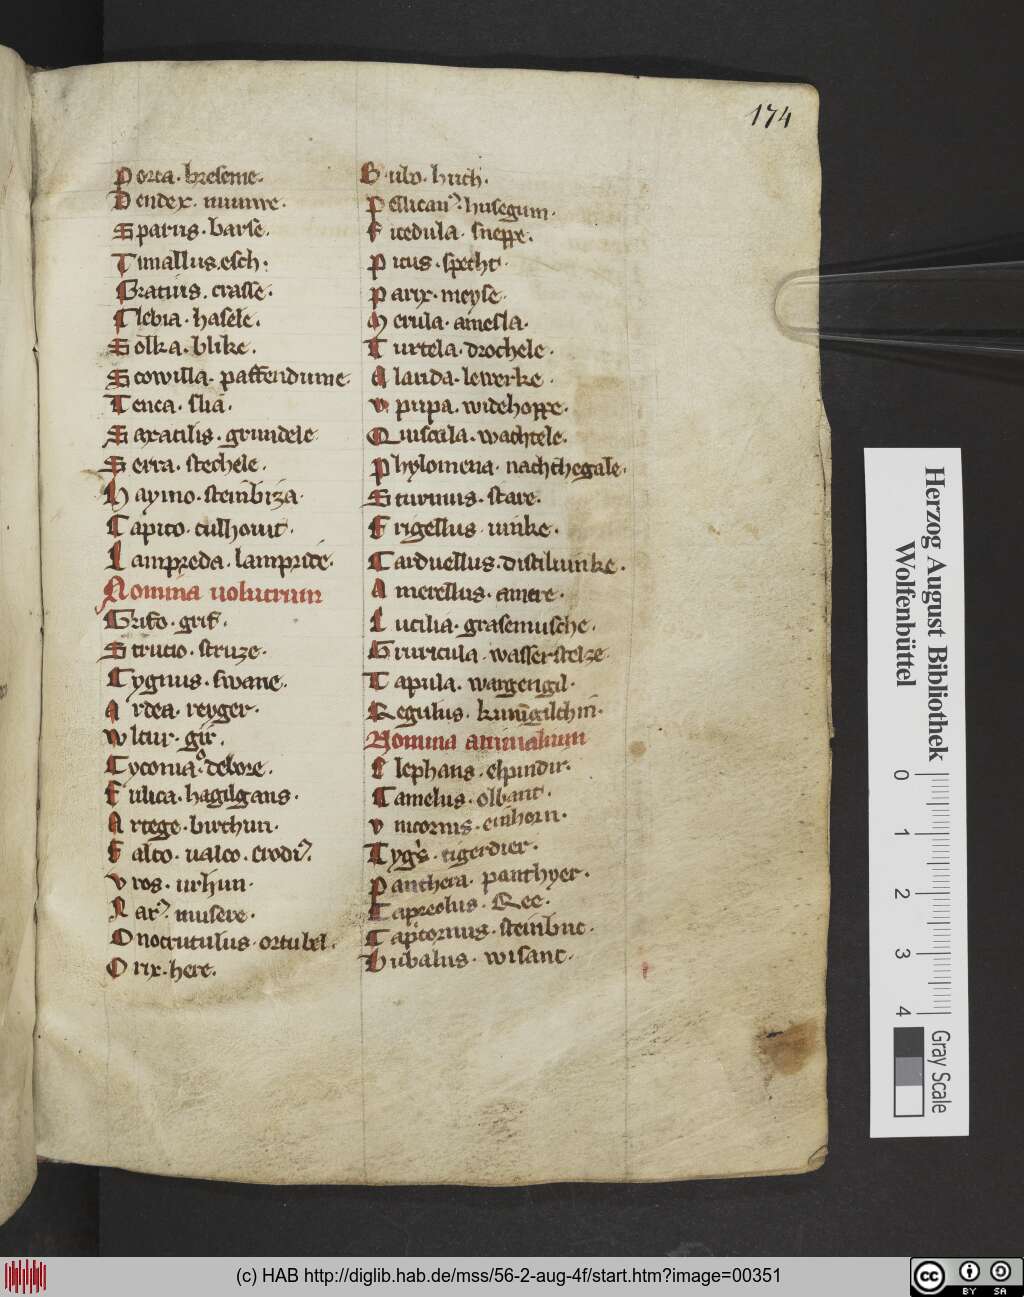 174
Porca · breseme ·
Dendex · munwe ·
Sparus · barse ·
Timallus · esch ·
Gratius · crasse ·
Clebia · hasele ·
Solka · blike ·
Scowilla · paffendume ·
Tenca · slia ·
Saxatilis · grundele
Serra · stechele ·
Haymo · steinbiza ·
Capito · culhouut ·
Lampreda · lampride ·
Nomina uolucrum
Grifo · grif ·
Strucio · struze ·
Cygnus · swane ·
Ardea · reyger ·
Wltur · gir ·
Cyconia · odebore ·
Fulica · hagilgans ·
Artege · birchun ·
Falco · ualco · erodiꝰ ·
Vros · urhun ·
Larꝰ · musere ·
Onocrutulus · ortubel ·
Orix · here ·
Bubo · huch ·
Pellicanꝰ · husegum ·
Ficedula · sneppe ·
Picus · specht ·
Parix · meyse ·
Merula · amesla ·
Turtela · drochele ·
Alauda · lewerke ·
Vpupa · widehoppe ·
Quiscula · wachtele ·
Phylomena · nachthegale ·
Sturnus · stare ·
Frigellus · uinke ·
Carduellus · distiluinke ·
Amerellus · amere ·
Lucilia · grasemusche ·
Gruricula · wasserstelze ·
Tapula · wargengil ·
Regulus · kunigilchin ·
Nomina animalium
Elephans · elpindir ·
Camelus · olbant ·
Vnicornis · einhorn ·
Tygris · tigerdier ·
Panthera · panthyer ·
Capreolus · Ree ·
Capricornus · steinbuc ·
Bubalus · wisant ·
Herzog August Bibliothek
Wolfenbüttel
0 1 2 3 4
Gray Scale
(c) HAB http://diglib.hab.de/mss/56-2-aug-4f/start.htm?image=00351
cc BY SA